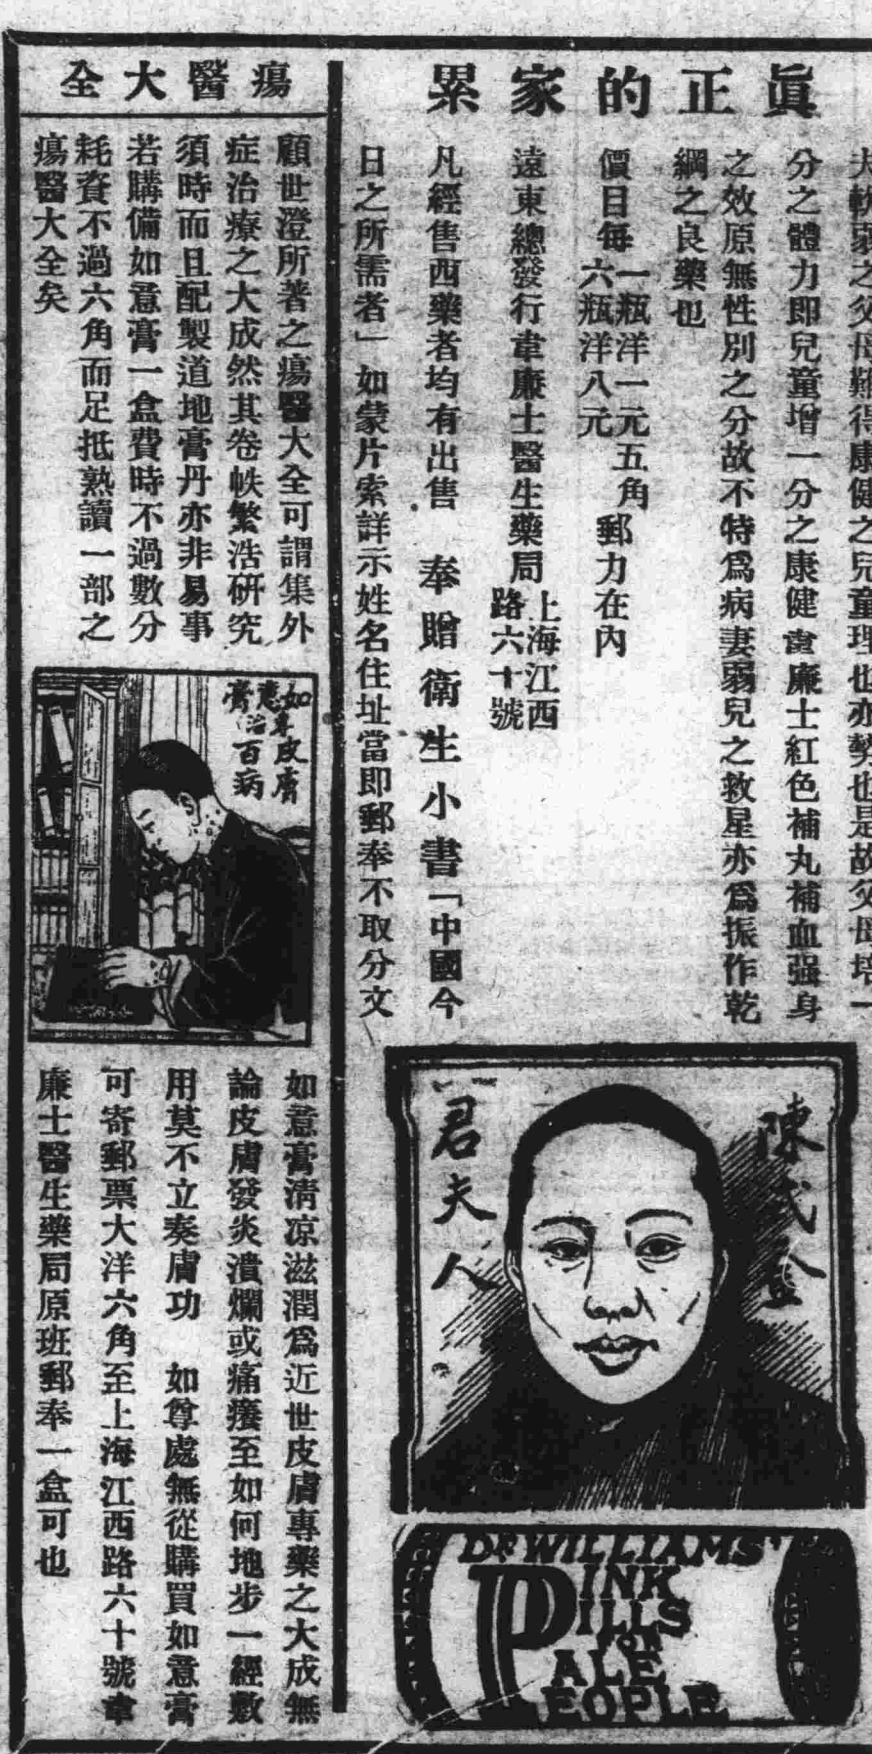 眞正的家累
夫軟弱之父母難得康健之兒童理也亦勢也是故父母培一
分之體力即兒童增一分之康健韋廉士紅色補丸補血强身
之效原無性別之分故不特爲病妻弱兒之救星亦爲振作乾
綱之良藥也
價目每一瓶洋一元五角
六瓶洋八元
郵力在內
遠東總發行韋廉士醫生藥局
上海江西
路六十號
凡經售西藥者均有出售 奉贈衛生小書「中國今
日之所需者」如蒙片索詳示姓名住址當即郵奉不取分文
陳
金
君夫人
DR WILLIAMS'
PINK
PILLS
FOR
PALE
PEOPLE
瘍醫大全
顧世澄所著之瘍醫大全可謂集外
症治療之大成然其卷帙繁浩研究
須時而且配製道地膏丹亦非易事
若購備如意膏一盒費時不過數分
耗資不過六角而足抵熟讀一部之
瘍醫大全矣
如意膏
專治皮膚百病
如意膏清凉滋潤爲近世皮膚專藥之大成無
論皮膚發炎潰爛或痛癢至如何地步一經敷
用莫不立奏膚功 如尊處無從購買如意膏
可寄郵票大洋六角至上海江西路六十號韋
廉士醫生藥局原班郵奉一盒可也